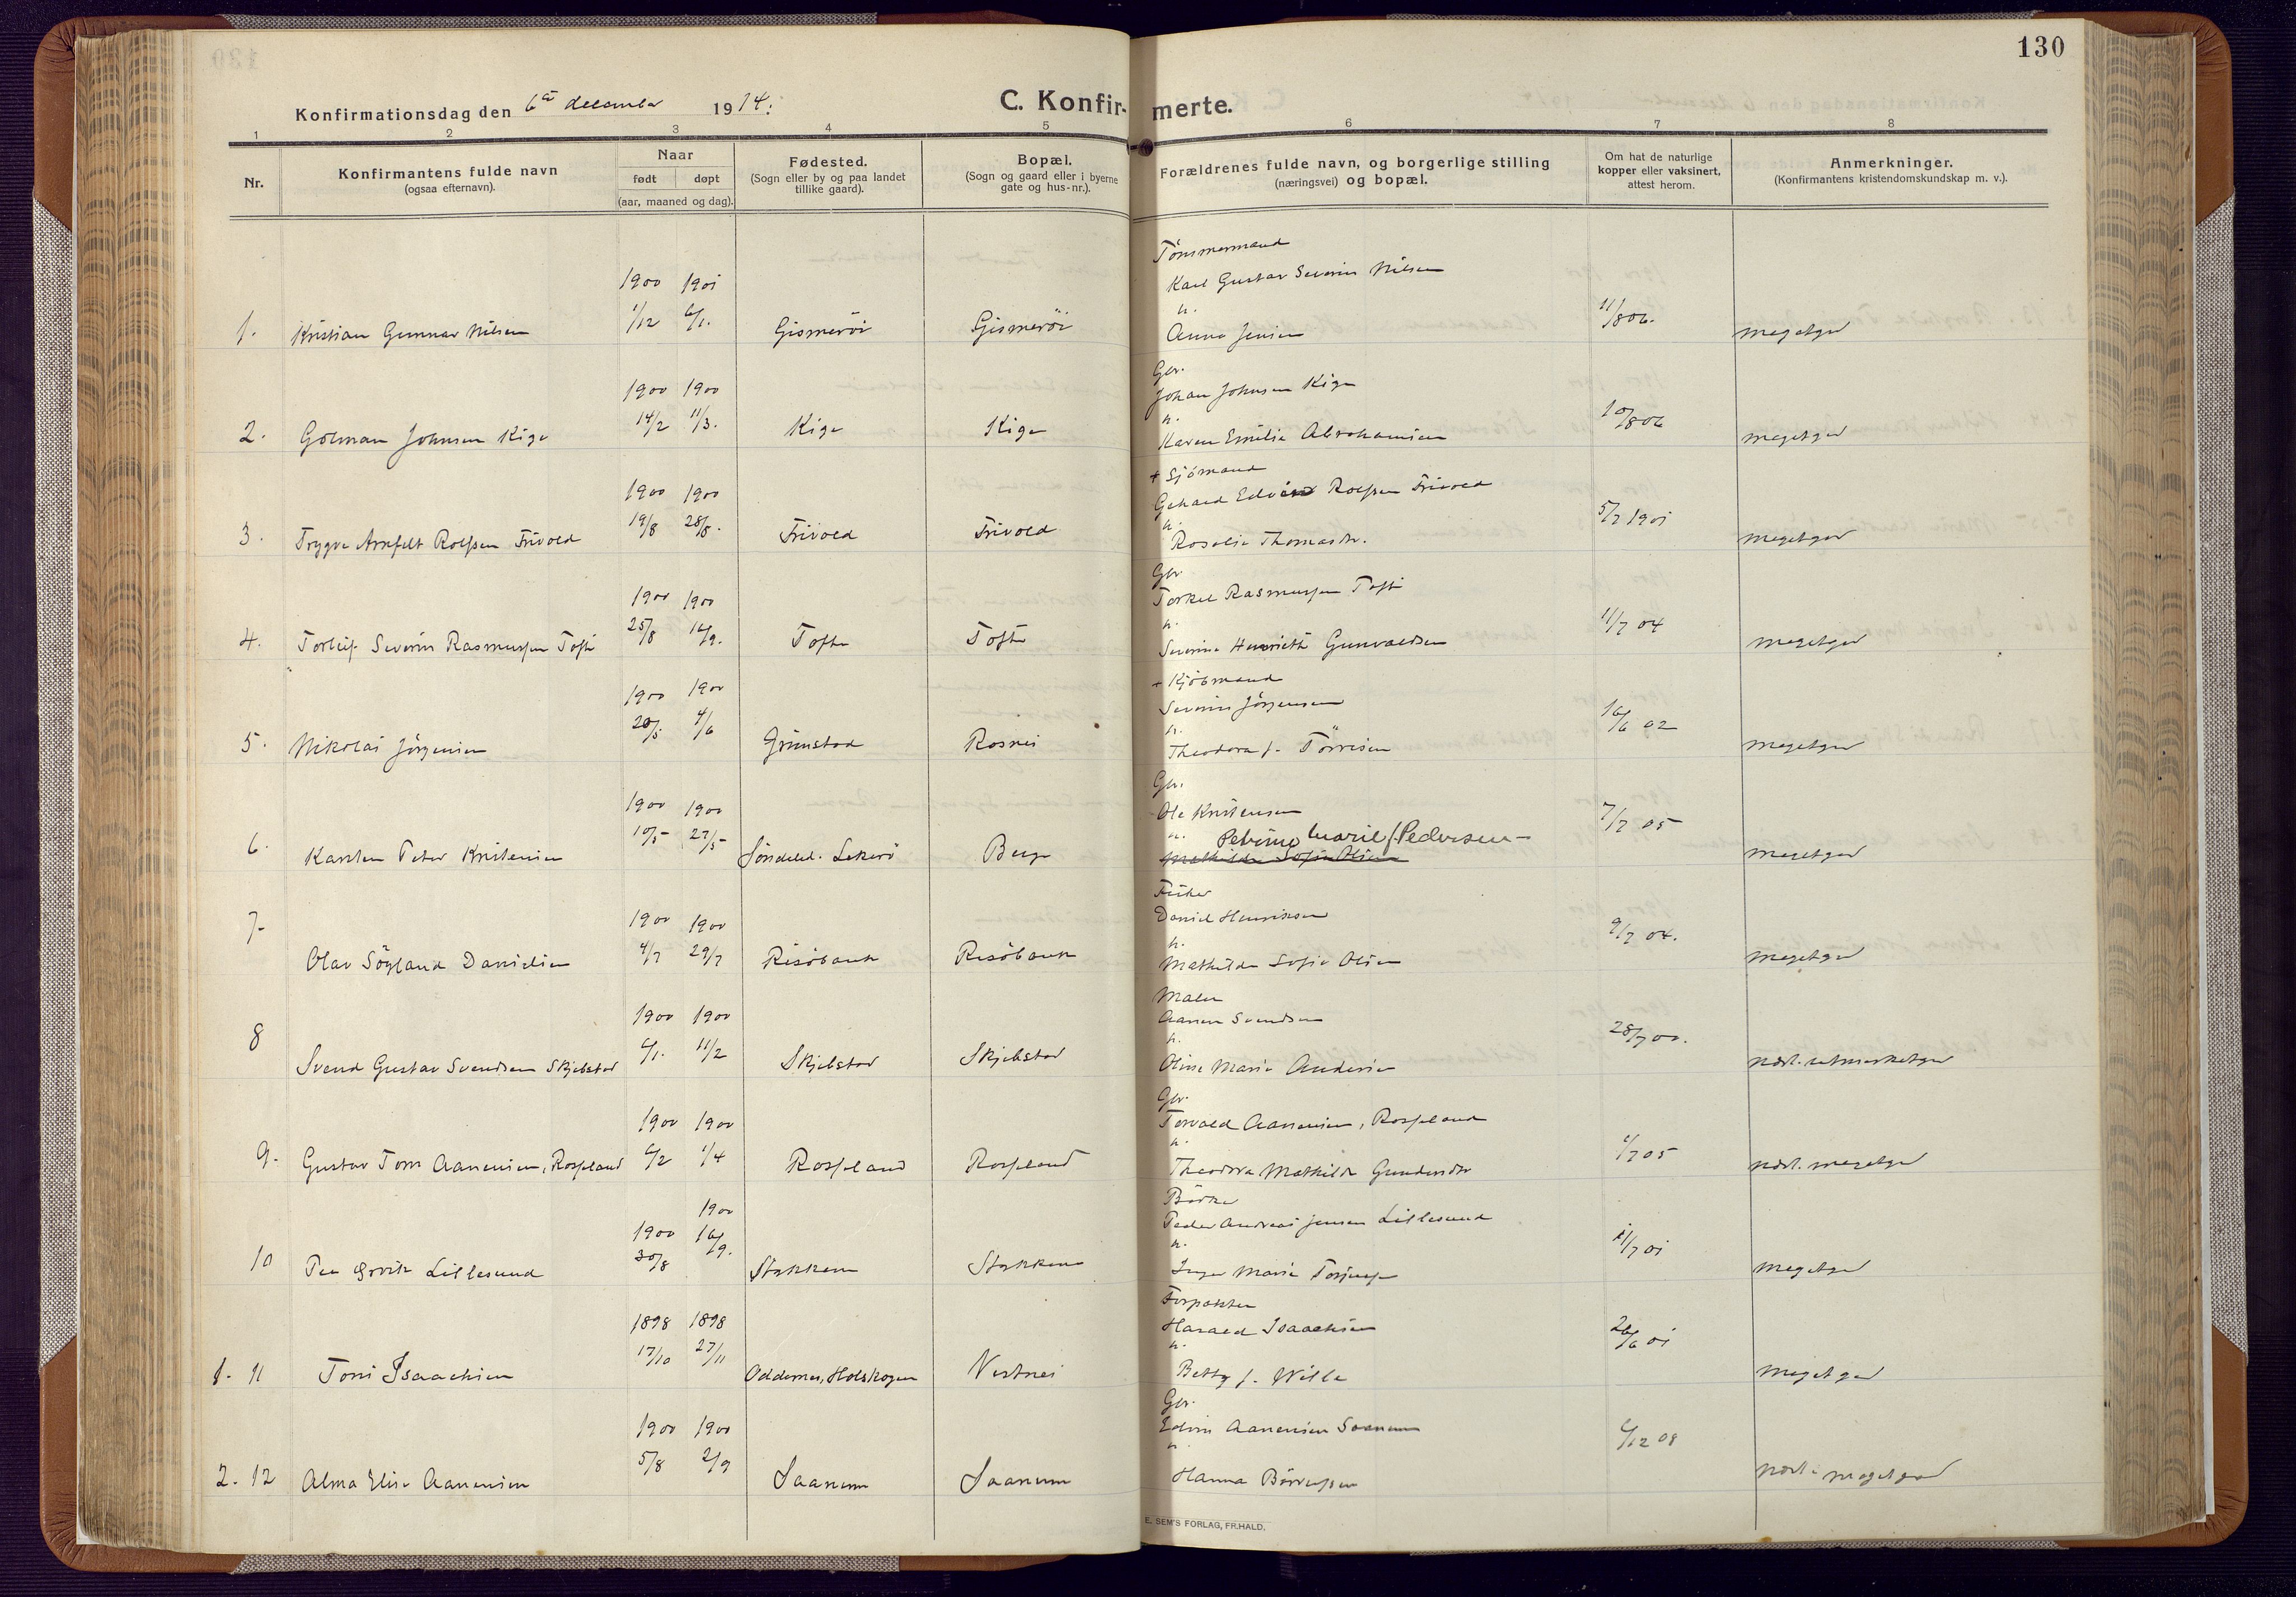 130
Konfirmationsdag den 6te december 1914.
C. Konfirmerte.
1 2 3 4 5 6 7 8
Nr.
Konfirmantens fulde navn
(ogsaa efternavn).
Naar
født døpt
(aar, maaned og dag).
Fødested.
(Sogn eller by og paa landet
tillike gaard).
Bopæl.
(Sogn og gaard eller i byerne
gate og hus-nr.).
Forældrenes fulde navn, og borgerlige stilling
(næringsvei) og bopæl.
Om hat de naturlige
kopper eller vaksinert,
attest herom.
Anmerkninger.
(Konfirmantens kristendomskundskap m. v.).
Tömmermand
Karl Gustav Severin Nilsen
1900 1901
h.
1. Kristian Gunnar Nilsen 1/12 6/1. Gismeröi Gismeröi Anna Jensen 11/8 06. megetgod
Gbr.
1900 1900 Johan Johnsen Kige
h.
2. Golman Johnsen Kige 14/2 11/3. Kige Kige Karen Emilie Abrahamsen 10/8 06 megetgod
+ Sjömand
1900 1900 Gerhard Edvin Rolfsen Frivold
h.
3. Trygve Arnfelt Rolfsen Frivold 19/8 28/8. Frivold Frivold Rosalie Thomasdr. 5/7 1901 megetgod
Gbr.
1900 1900 Torkel Rasmussen Tofte
h.
4. Torleif Severin Rasmussen Tofte 25/8 16/9. Tofte Tofte Severine Henriette Gunvaldsen 11/7 04 megetgod
+ Kjöbmand
1900 1900 Severin Jörgensen
h.
5. Nikolai Jörgensen 20/5 4/6 Grimstad Rosnes Theodora f. Törresen 16/6 02 megetgod
Gbr.
1900 1900 Ole Kristensen
h. Petrine Marie f. Pedersen
6. Karsten Peter Kristensen 10/5 27/5 Söndeled. Lekerö Berge Mathilde Sofie Olsen 7/7 05 megetgod
Fisker
1900 1900 Daniel Henriksen
h.
7. Olav Sögland Danielsen 4/7 29/7 Risöbank Risöbank Mathilde Sofie Olsen 9/7 04. megetgod
Maler
1900 1900 Aanen Svendsen
h.
8 Svend Gustav Svendsen Skjebstad 6/1. 11/2 Skjebstad Skjebstad Oline Marie Andersen 28/7 00. næst. utmerketgod
Gbr.
1900 1900 Torvald Aanensen, Rosseland
h.
9. Gustav Tom Aanensen, Rosseland 6/2 1/4 Rosseland Rosseland Theodora Mathilde Gundersdtr 6/7 05 næst. megetgod
Bödker
1900 1900 Peder Andreas Jensen Lillesund
h.
10 Per Lillesund 30/8 16/9. Stokken Stokken Inger Marie 11/7 01 megetgod
Forpakter
1898 1898 Harald Isaachsen
h.
1. 11 Toni Isaachsen 17/10 27/11 Oddernes, Holskogen Vestnes Betty f. Wille 26/6 01 megetgod
Gbr.
1900 1900 Edvin Aanensen Saanum
h.
2. 12 Alma Elise Aanensen 5/8 2/9 Saanum Saanum Hanna Börresen 6/12 08 næst. megetgod
E. SEM'S FORLAG, FR.HALD.